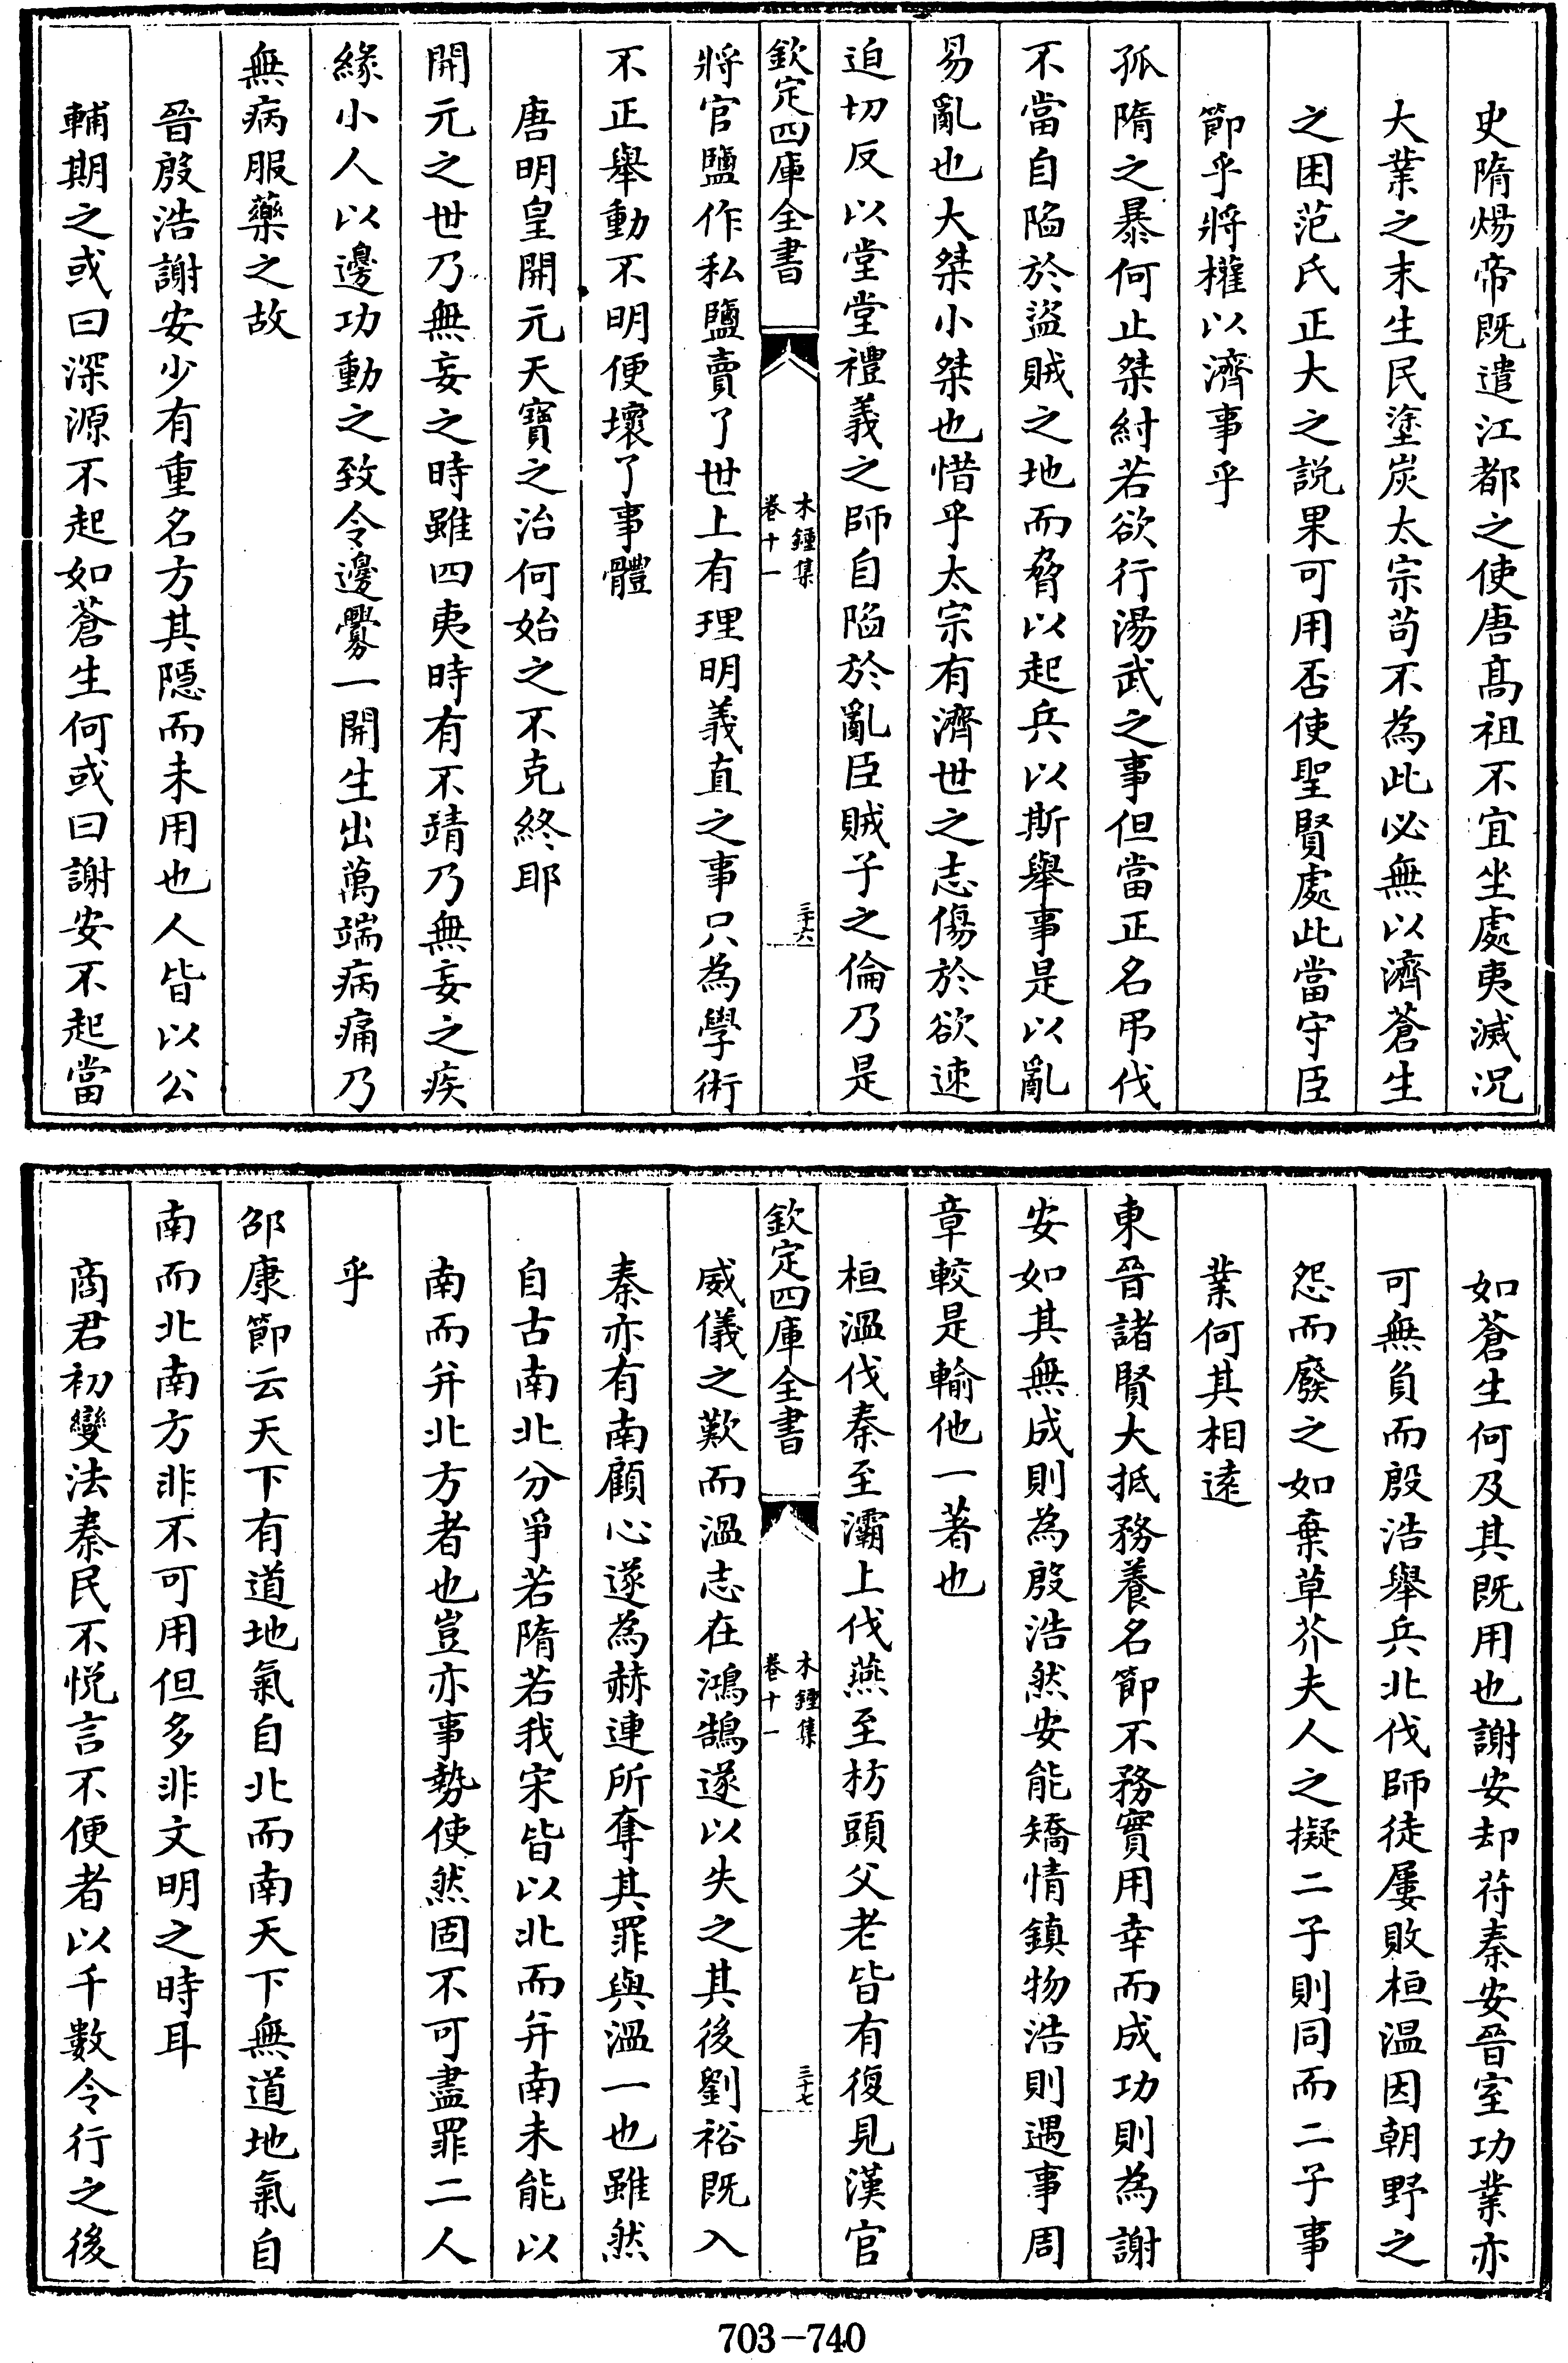 史隋煬帝既遣江都之使唐髙祖不宜坐處夷滅况
大業之末生民塗炭太宗苟不為此必無以濟蒼生
之困范氏正大之説果可用否使聖賢處此當守臣
節乎將權以濟事乎
孤隋之暴何止桀紂若欲行湯武之事但當正名弔伐
不當自陷於盜賊之地而脅以起兵以斯舉事是以亂
易亂也大桀小桀也惜乎太宗有濟世之志傷於欲速
迫切反以堂堂禮義之師自陷於亂臣賊子之倫乃是
欽定四庫全書
木鍾集
卷十一
三十六
將官鹽作私鹽賣了世上有理明義直之事只為學術
不正舉動不明便壞了事體
唐明皇開元天寶之治何始之不克終耶
開元之世乃無妄之時雖四夷時有不靖乃無妄之疾
緣小人以邊功動之致令邊釁一開生出萬端病痛乃
無病服藥之故
晉殷浩謝安少有重名方其隱而未用也人皆以公
輔期之或曰深源不起如蒼生何或曰謝安不起當
如蒼生何及其既用也謝安却苻秦安晉室功業亦
可無負而殷浩舉兵北伐師徒屢敗桓温因朝野之
怨而廢之如棄草芥夫人之擬二子則同而二子事
業何其相逺
東晉諸賢大抵務養名節不務實用幸而成功則為謝
安如其無成則為殷浩然安能矯情鎮物浩則遇事周
章較是輸他一著也
桓溫伐秦至灞上伐燕至枋頭父老皆有復見漢官
欽定四庫全書
木鍾集
卷十一
三十七
威儀之歎而溫志在鴻鵠遂以失之其後劉裕既入
秦亦有南顧心遂為赫連所奪其罪與溫一也雖然
自古南北分爭若隋若我宋皆以北而并南未能以
南而并北方者也豈亦事勢使然固不可盡罪二人
乎
邵康節云天下有道地氣自北而南天下無道地氣自
南而北南方非不可用但多非文明之時耳
商君初變法秦民不悦言不便者以千數令行之後
703-740